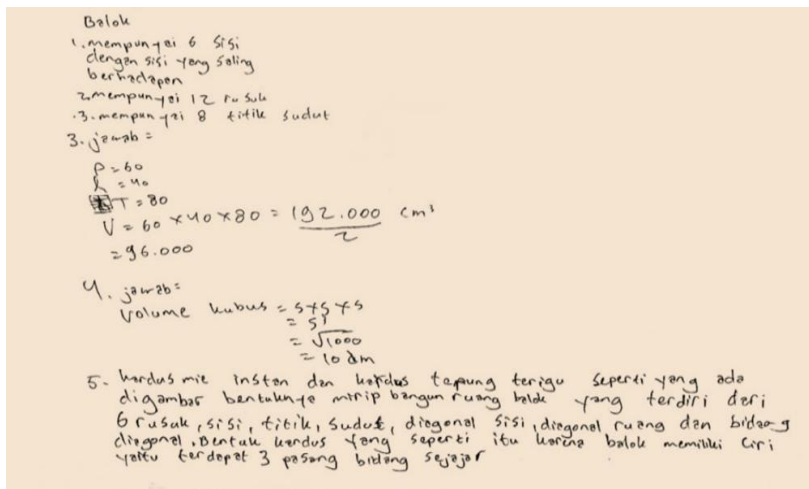 Balok
1. mempunyai 6 sisi
dengan sisi yang saling
berhadapan
2. mempunyai 12 rusuk
.3. mempunyai 8 titik sudut
3. jawab =
P = 60
l = 40
T = 80
V = 60 x 40 x 80 = 192.000 cm³
2
= 96.000
4. jawab =
Volume kubus = s + s + s
= s³
= √1000
= 10 dm
5. kardus mie instan dan kardus tepung terigu seperti yang ada
digambar bentuknya mirip bangun ruang balok yang terdiri dari
6 rusuk, sisi, titik, sudut, diagonal sisi, diagonal ruang dan bidang
diagonal, Bentuk kardus yang seperti itu karena balok memiliki ciri
yaitu terdapat 3 pasang bidang sejajar